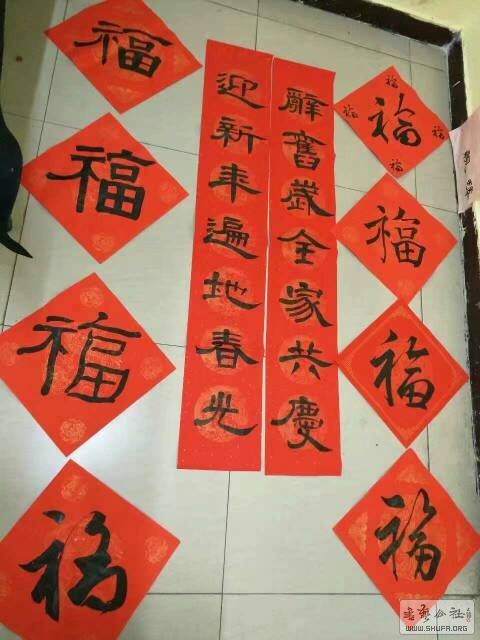 辭舊歲全家共慶
迎新年遍地春光
福
福
福
福
福
福
福
福
福
福
福
福
WWW.SHUFA.ORG